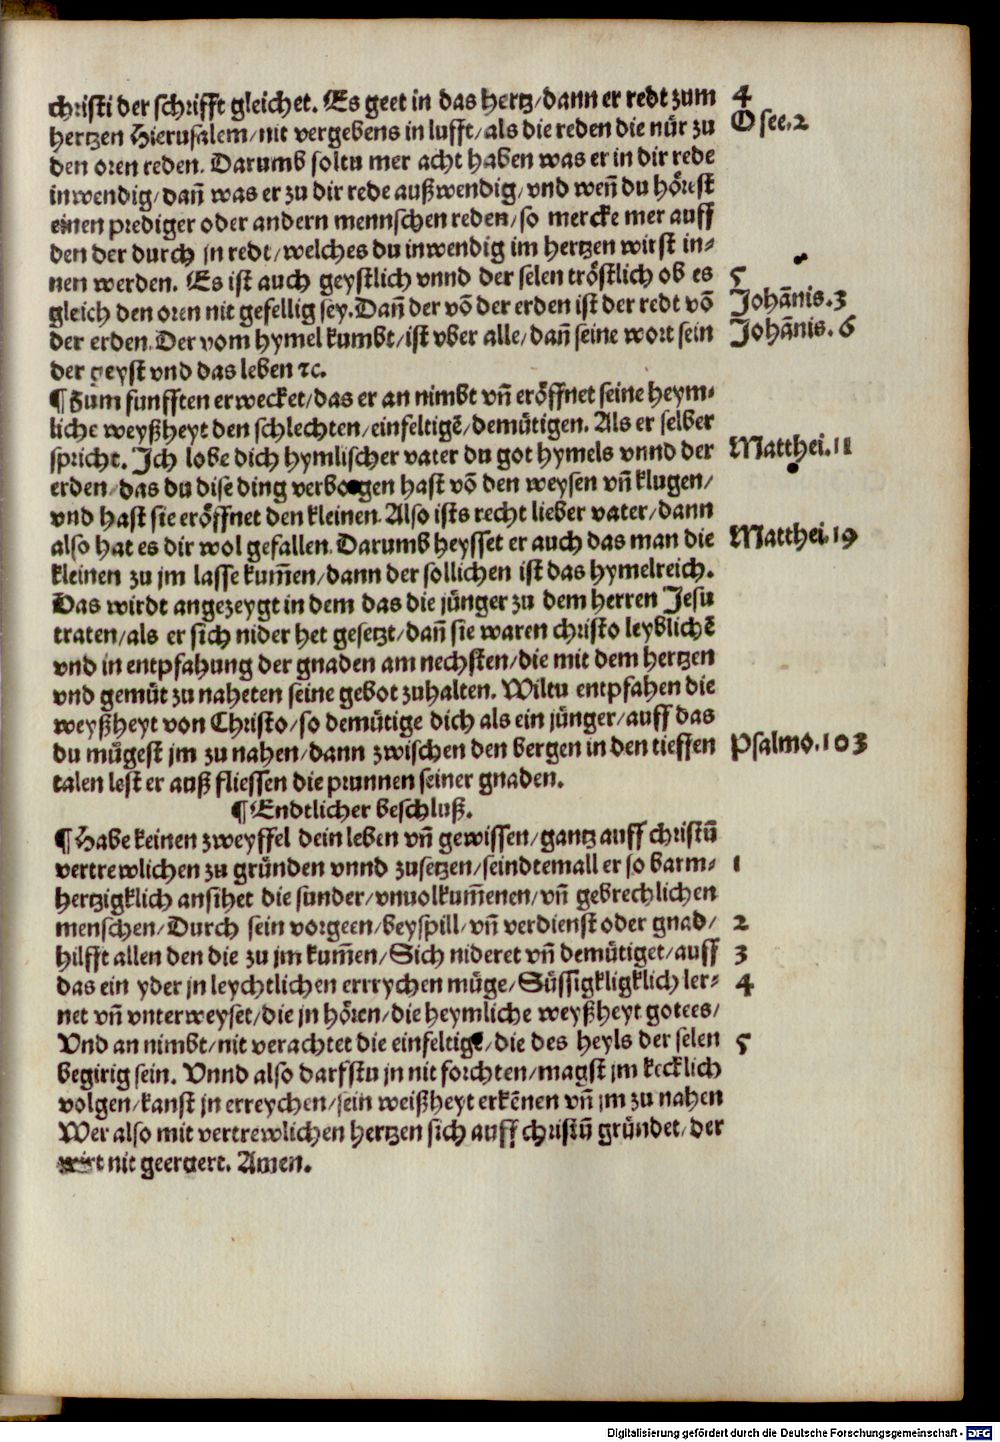 christi der schrifft gleichet. Es geet in das hertz/dann er redt zum 4
hertzen Hierusalem/nit vergebens in lufft/als die reden die nůr zu Osee.2
den oren reden. Darumb soltu mer acht haben was er in dir rede
inwendig/dañ was er zu dir rede außwendig/vnd weñ du hörest
einen prediger oder andern mennschen reden/so mercke mer auff
den der durch jn redt/welches du inwendig im hertzen wirst in-
nen werden. Es ist auch geystlich vnnd der selen tröstlich ob es 5
gleich den oren nit gefellig sey. Dañ der võ der erden ist der redt võ Johãnis.3
der erden. Der vom hymel kumbt/ist vber alle/dañ seine wort sein Johãnis.6
der geyst vnd das leben ⁊c.
¶ Zům funfften erwecket/das er an nimbt vñ eröffnet seine heym-
liche weyßheyt den schlechten/einfeltigẽ/demůtigen. Als er selber
spricht. Ich lobe dich hymlischer vater du got hymels vnnd der Matthei.11
erden/das du dise ding verborgen hast võ den weysen vñ klugen/
vnd hast sie eröffnet den kleinen. Also ists recht lieber vater/dann
also hat es dir wol gefallen. Darumb heysset er auch das man die Matthei.19
kleinen zu jm lasse kum̃en/dann der sollichen ist das hymelreich.
Das wirdt angezeygt in dem das die jünger zu dem herren Jesu
traten/als er sich nider het gesetzt/dañ sie waren christo leyblichẽ
vnd in entpfahung der gnaden am nechsten/die mit dem hertzen
vnd gemůt zu naheten seine gebot zuhalten. Wiltu entpfahen die
weyßheyt von Christo/so demůtige dich als ein jünger/auff das
du mügest jm zu nahen/dann zwischen den bergen in den tieffen Psalmo.103
talen lest er auß fliessen die prunnen seiner gnaden.
¶ Endtlicher beschluß.
¶ Habe keinen zweyffel dein leben vñ gewissen/gantz auff christũ
vertrewlichen zu gründen vnnd zusetzen/seindtemall er so barm- 1
hertzigklich ansihet die sunder/vnuolkum̃enen/vñ gebrechlichen
menschen/Durch sein vorgeen/beyspill/vñ verdienst oder gnad/ 2
hilfft allen den die zu jm kum̃en/Sich nideret vñ demůtiget/auff 3
das ein yder jn leychtlichen errrychen müge/Süssigkligklich ler- 4
net vñ vnterweyset/die jn hören/die heymliche weyßheyt gotees/
Vnd an nimbt/nit verachtet die einfeltigẽ/die des heyls der selen 5
begirig sein. Vnnd also darfstu jn nit forchten/magst jm kecklich
volgen/kanst jn erreychen/sein weißheyt erkẽnen vñ jm zu nahen
Wer also mit vertrewlichen hertzen sich auff christũ gründet/der
wirt nit geergert. Amen.
Digitalisierung gefördert durch die Deutsche Forschungsgemeinschaft - DFG